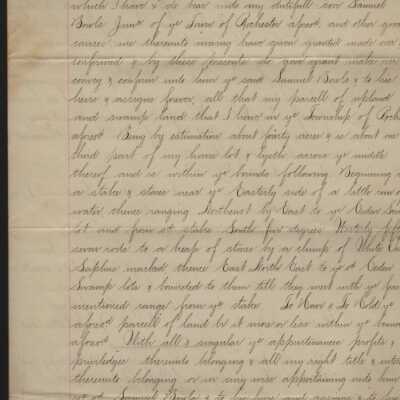 which I have & do bear unto my dutifull son Samuel
Bowls Junr of ye Town of Rochester aforsd. and other good
causes me thereunto moving have given granted made over
confirmed & by these presents do give grant make over
convey & confirm unto him ye said Samuel Bowls & to his
heirs & assigns forever, all that my parcell of upland
and swamp land that I have in ye Township of Roch
aforsd Being by estimation about forty acres & is about one
third part of my home lot & lyeth across ye middle
thereof and is within ye bounds following Beginning
a stake & stones near ye Easterly side of a little run of
water thence ranging Northeast by East to ye Cedar Swamp
lot and from sd stake South four degrees Westerly fifty
seven rods to a heap of stones by a clump of White Oak
Saplins marked, thence East North East to ye sd Cedar
Swamp lots & bounded by them till they meet with ye fore
mentioned range from ye stake To Have & To Hold ye
aforsd parcell of land be it more or less within ye bounds
aforsd With all & singular ye appurtenances profits &
priviledges thereunto belonging & all my right title & interest
thereunto belonging or in any wise appertaining unto him
ye sd Samuel Bowls & to his heirs and assigns